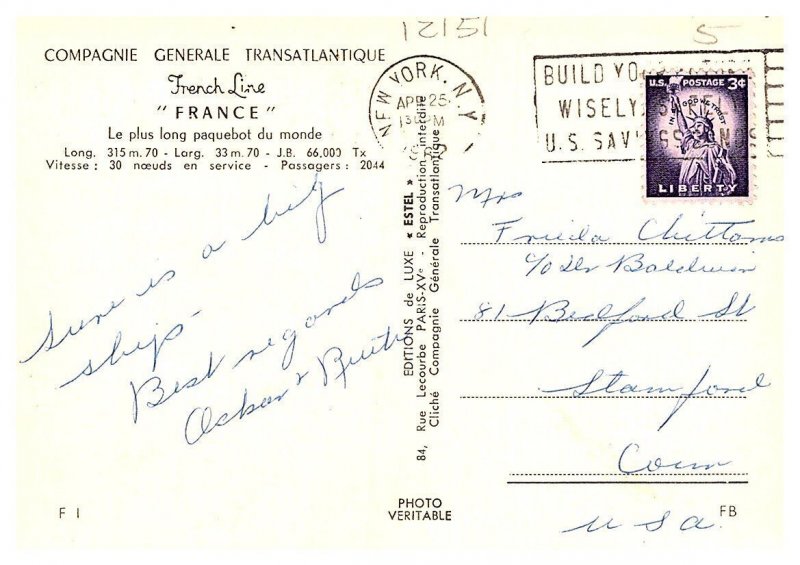 12151
5
COMPAGNIE GENERALE TRANSATLANTIQUE
French Line
"FRANCE"
Le plus long paquebot du monde
Long. 315 m. 70 - Larg. 33 m. 70 - J.B. 66,000 Tx
Vitesse : 30 nœuds en service - Passagers : 2044
Sure is a big
ship -
Best regards
Oskar & Ruth
84, Rue Lecourbe PARIS-XVe - Reproduction interdite
EDITIONS de LUXE "ESTEL"
Cliché Compagnie Générale Transatlantique
NEW YORK, N.Y.
APR 25
PM
BUILD YO
WISELY
U.S. SAV
U.S. POSTAGE 3¢
IN GOD WE TRUST
LIBERTY
Mrs
Frieda Chittams
c/o Dr Baldwin
81 Bedford St
Stamford
Conn
USA.
F I
PHOTO
VERITABLE
FB